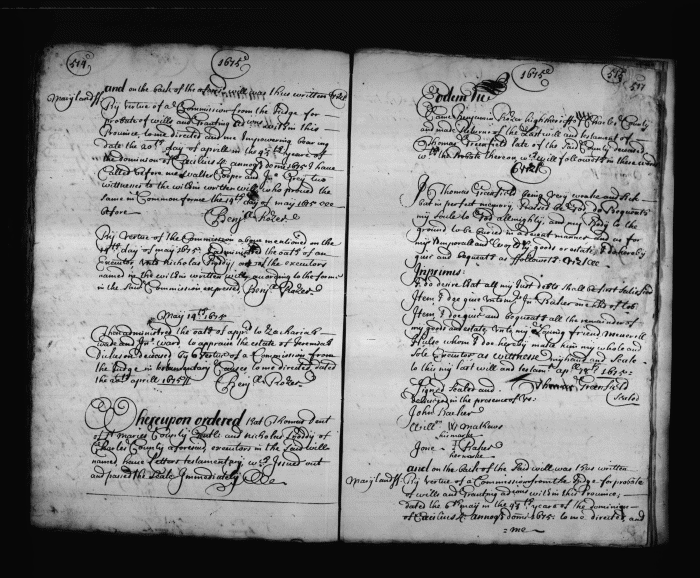 514
1675
and on the back of the afores will was thus written vizt
Maryland ss By vertue of a Commission from the Judge for
probate of wills and Granting adcons within this
Province, to me directed and me Impowering bear my
date the 20th day of aprill in the 43th yeare of
the dominion of Cecilius &c annoq domi 1675 I have
Called before me Walter Cooper and Jno Grey two
witnesses to the within written will who proved the
same in Common forme the 14th day of may 1675
before
Benja Rozer
By vertue of the Commission above mentioned on the
14th day of may 1675 administred the oath of an
Executor unto Nicholas Proddy one of the executors
named in the within written will, according to the forme
in the said Commission expressed Benja Rozer
May 14th 1675
Then administred the oath of appr to Zachariah
wade and Jno ward to appraise the estate of Jeremiah
Dickeson deceased by vertue of a Commission from
the Judge in Testamentary Causes to me directed dated
the 20th aprill 1675
Benja Rozer
Whereupon ordered that Thomas Dent
of St maries County Gentl and Nicholas Proddy of
Charles County aforesd, executors in the said will
named have Letters testamentary, wch Issued out
and passed the Seale Immediately
1675
515
517
Eodem die
Came Benjamin Rozer high sheriff of Charles County
and made returne of the last will and testament of
Thomas Greenfield late of the said County deceased
wth the Probate thereon wch will followeth in these words
vizt
I Thomas Greenfield being very weake and sick
but in perfect memory, Praised be God do bequeath
my soule to God allmighty, and my Body to the
ground to be buried in decent manner and as for
my temporall goods or estate, I do hereby
give and bequeath as followeth vizt
Inprimis:
I do desire that all my just debts shall be first satisfied
Item, I doe give unto Jno Barker
Item, I doe give and bequeath all the remainder of
my goods and estate unto my loving friend
whom I doe hereby make him my whole and
sole executor as witness my hand and Seale
to this my last will and testamt aprll 1675:
Thomas Greenfield
Sealed
Signed Sealed and
delivered in the presence of us:
John Barker
Willm W Mathews
his marke
Jone Barker
her marke
and on the back of the said will was thus written
Maryland ss: By vertue of a Commission from the Judge for probate
of wills and Granting adcons within this Province,
dated the 6th may in the 43th yeare of the dominion
of Cecilius &c annoq domi 1675: to me directed, and
me